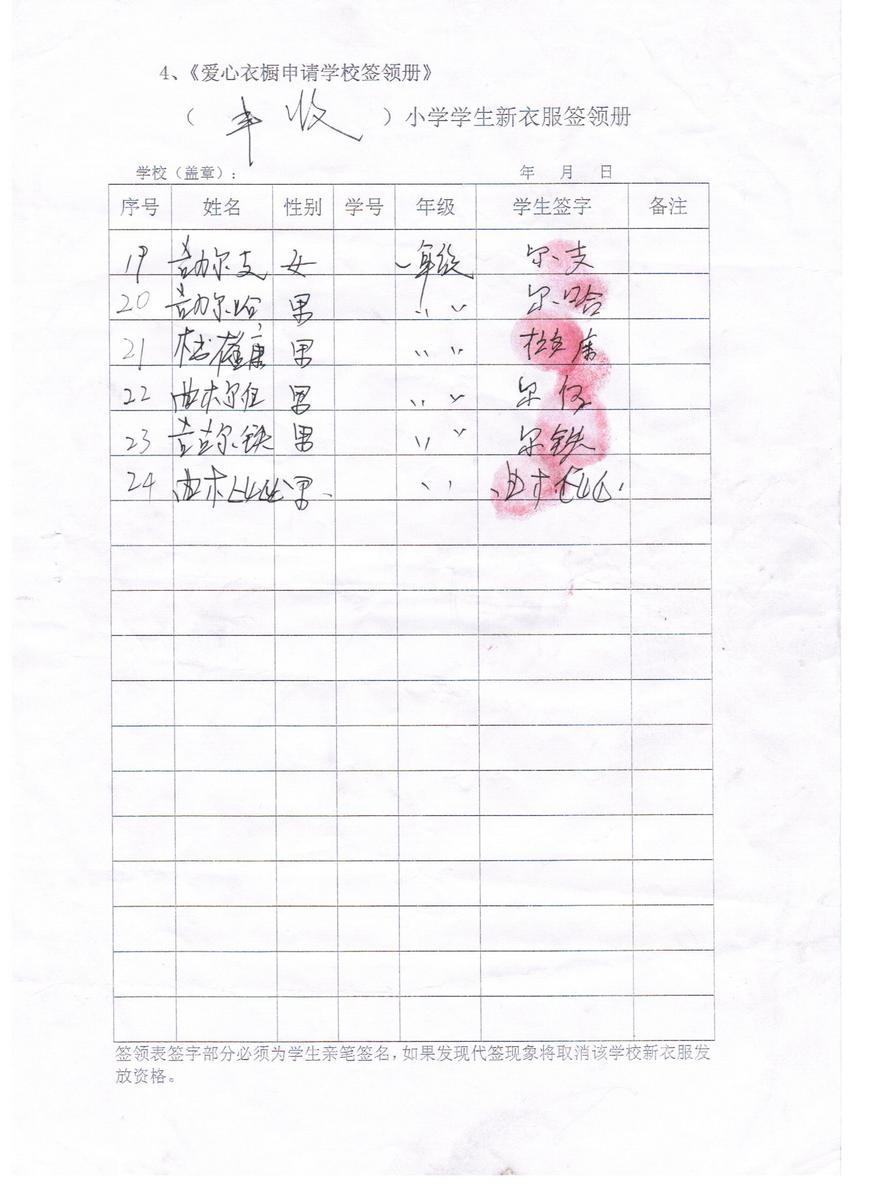 4、《爱心衣橱申请学校签领册》
（丰收）小学学生新衣服签领册
学校（盖章）： 年 月 日
序号 姓名 性别 学号 年级 学生签字 备注
19 尔支 女 一年级 尔支
20 尔哈 男 〃 尔哈
21 男 〃
22 曲木尔 男 〃 尔
23 尔铁 男 〃 尔铁
24 曲木 男 〃 曲木
签领表签字部分必须为学生亲笔签名，如果发现代签现象将取消该学校新衣服发
放资格。